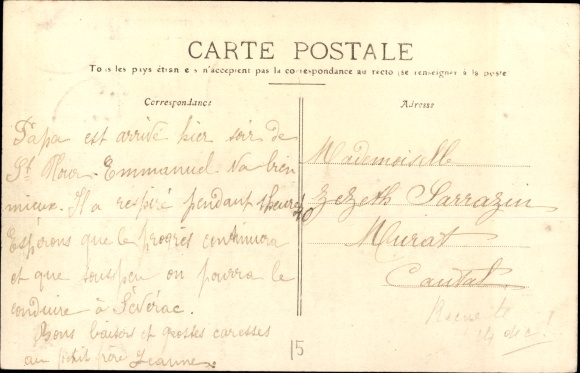 CARTE POSTALE
Tous les pays étrangers n'acceptent pas la correspondance au recto (se renseigner à la poste
Correspondance
Papa est arrivé hier soir de
St Flour. Emmanuel va bien
mieux. Il a respiré pendant 1 heure 40
Espérons que le progrès continuera
et que sous peu on pourra le
conduire à Séverac.
Bons baisers et grosses caresses
au petit frère Jeanne
Adresse
Mademoiselle
Zézeth Sarrazin
Murat
Cantal
Recue le
14 dec!
15